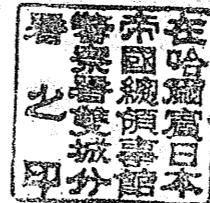 在哈爾賓日本
帝國總領事館
警察署雙城分
署之印